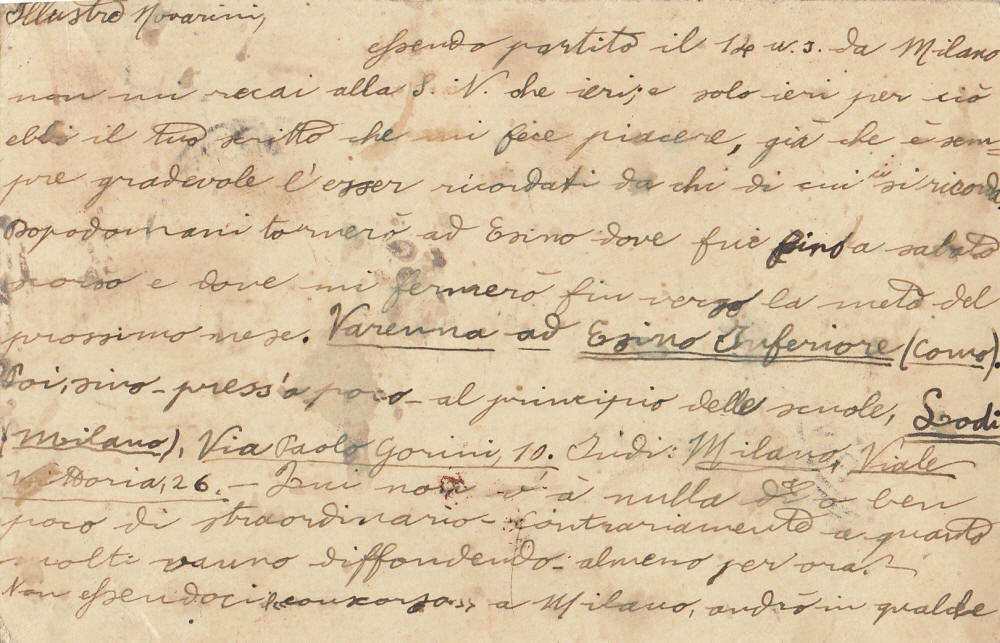 Illustre Novarini,
essendo partito il 14 u. s. da Milano
non mi recai alla S. N. che ieri; e solo ieri per ciò
ebbi il tuo scritto che mi fece piacere, già che è sem=
pre gradevole l'esser ricordati da chi di cui ci si ricorda.
Dopodomani tornerò ad Esino dove fui fino a sabato
scorso e dove mi fermerò fin verso la metà del
prossimo mese. Varenna ad Esino Inferiore (Como).
Poi, sino - press'a poco - al principio delle scuole, Lodi
(Milano), Via Paolo Gorini, 10. Indi: Milano, Viale
Vittoria, 26. - Qui non v'à nulla di o ben
poco di straordinario - contrariamente a quanto
molti vanno diffondendo - almeno per ora.
Non essendoci "concorso" a Milano, andrò in qualche